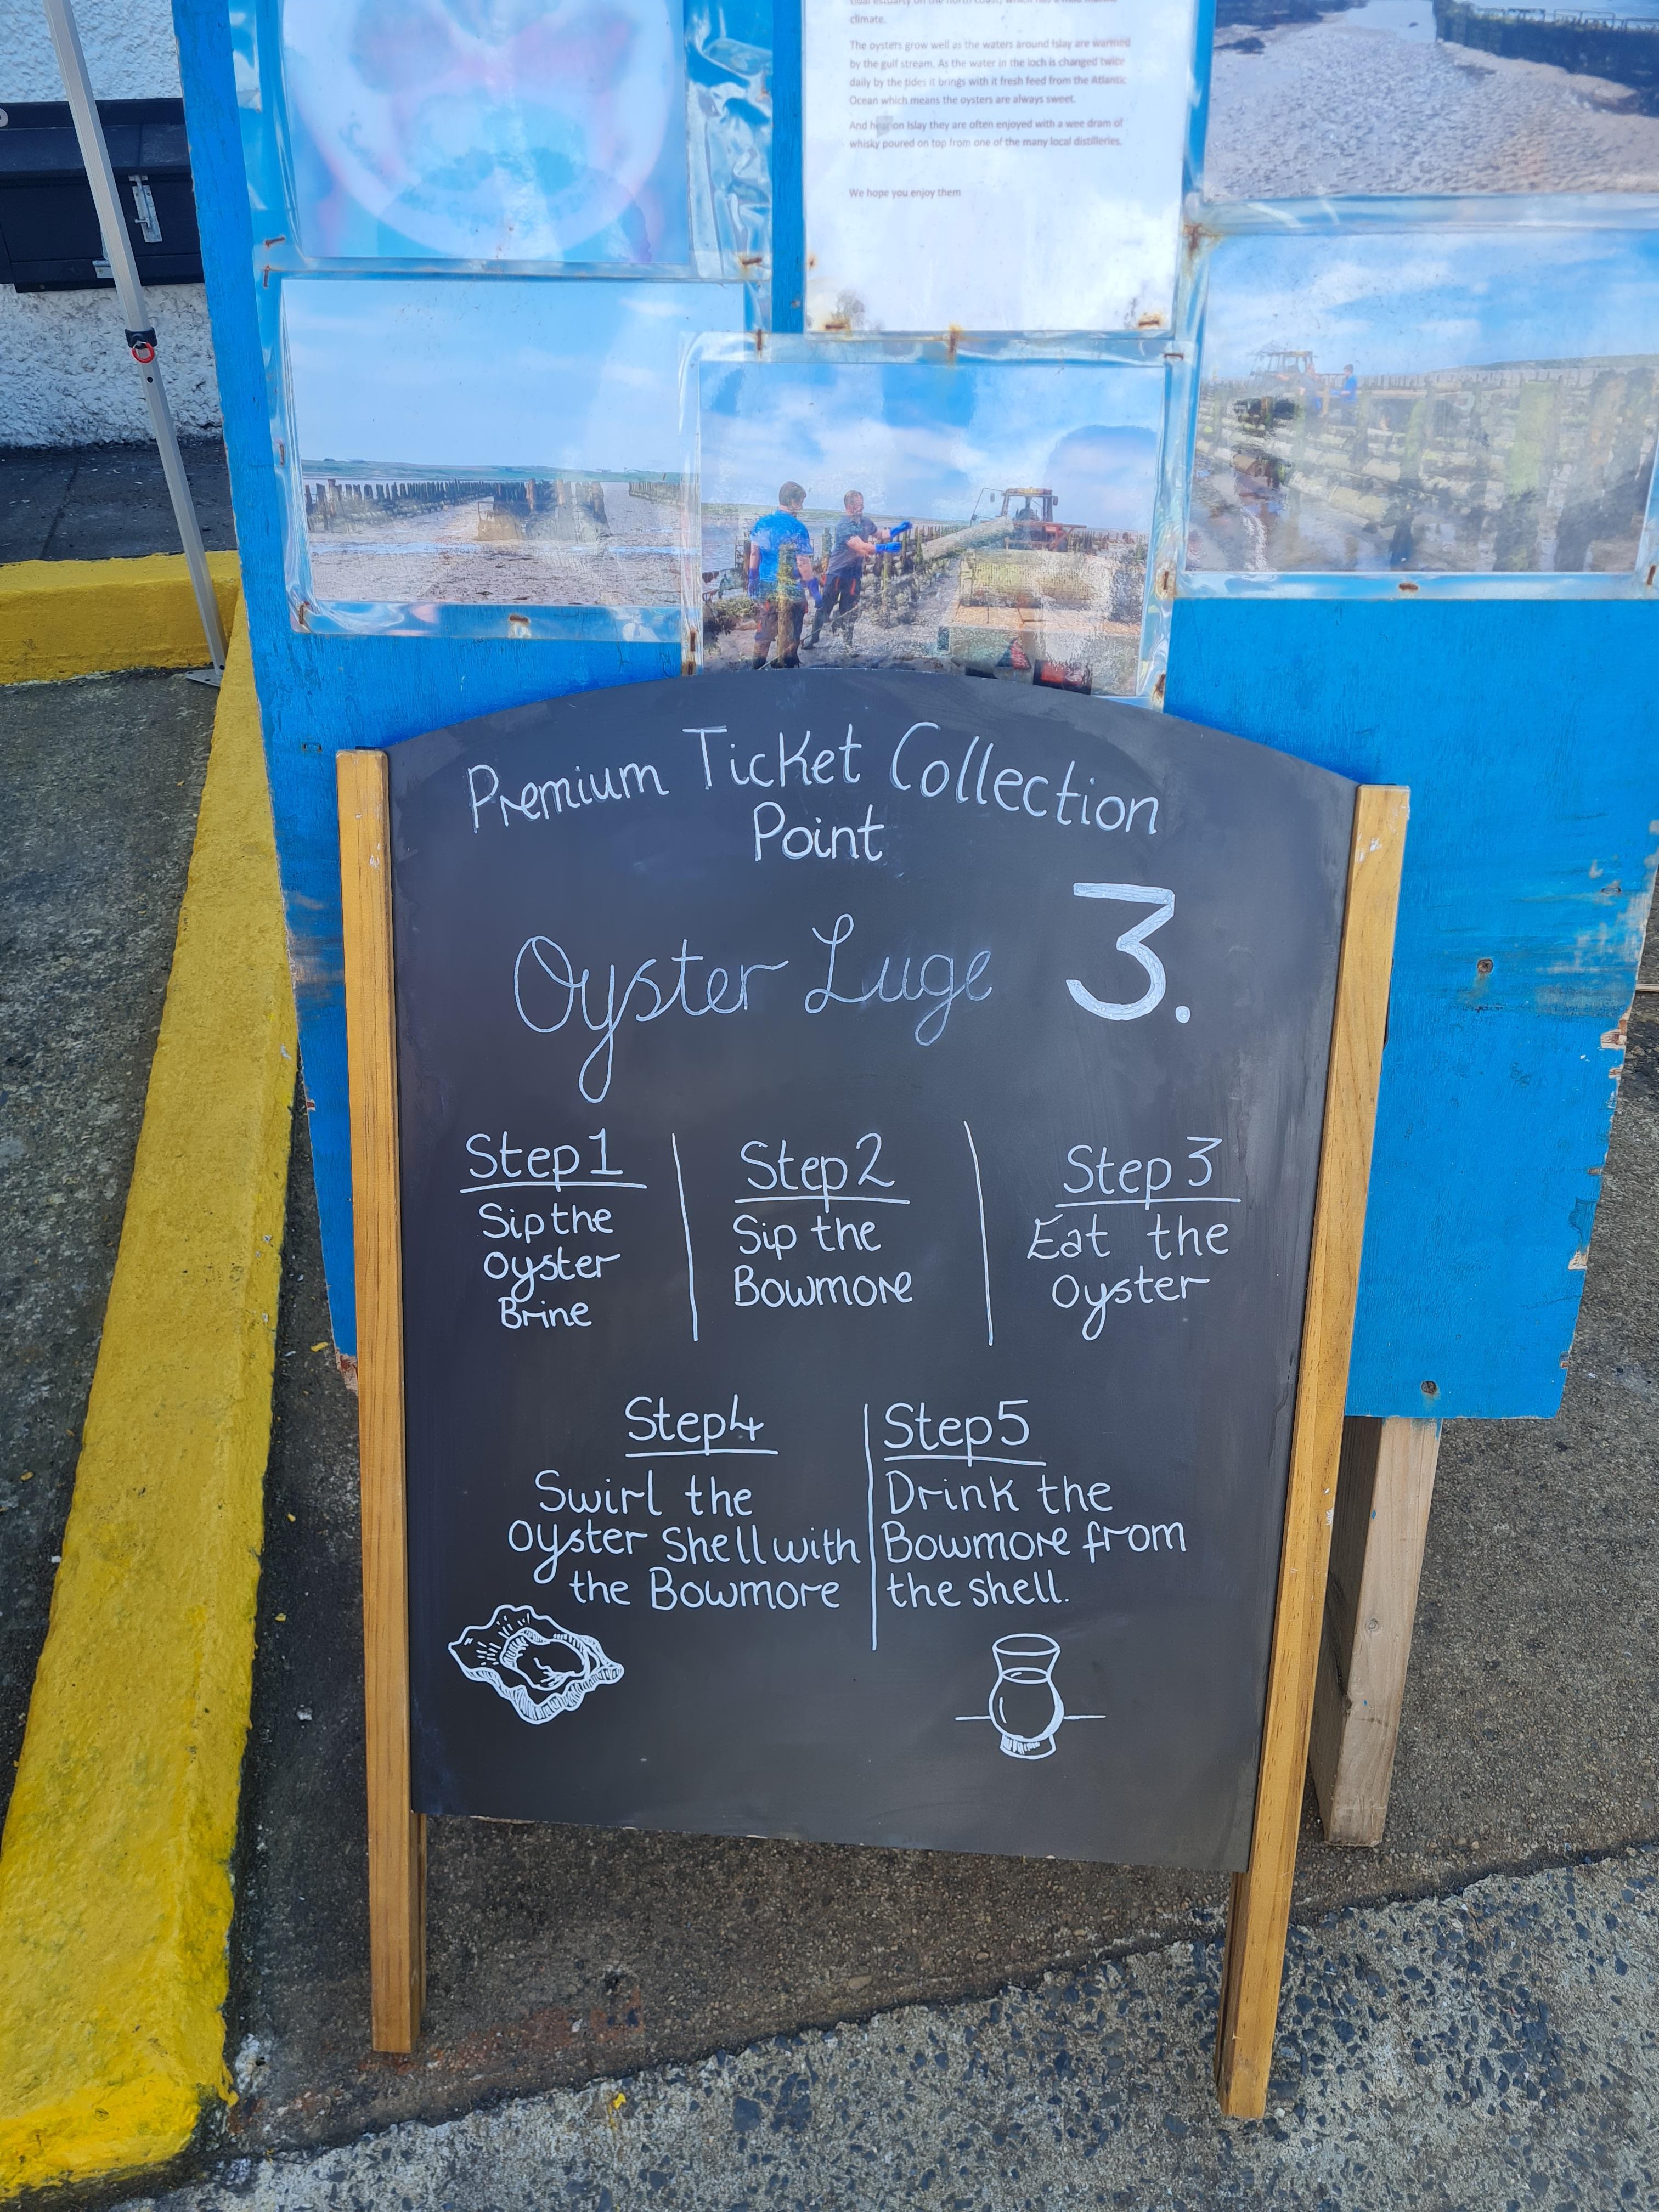 climate.
The oysters grow well as the waters around Islay are warmed
by the gulf stream. As the water in the loch is changed twice
daily by the tides it brings with it fresh feed from the Atlantic
Ocean which means the oysters are always sweet.
And hear on Islay they are often enjoyed with a wee dram of
whisky poured on top from one of the many local distilleries.
We hope you enjoy them
Premium Ticket Collection
Point
Oyster Luge 3.
Step 1
Sip the
Oyster
Brine
Step 2
Sip the
Bowmore
Step 3
Eat the
Oyster
Step 4
Swirl the
Oyster Shell with
the Bowmore
Step 5
Drink the
Bowmore from
the shell.